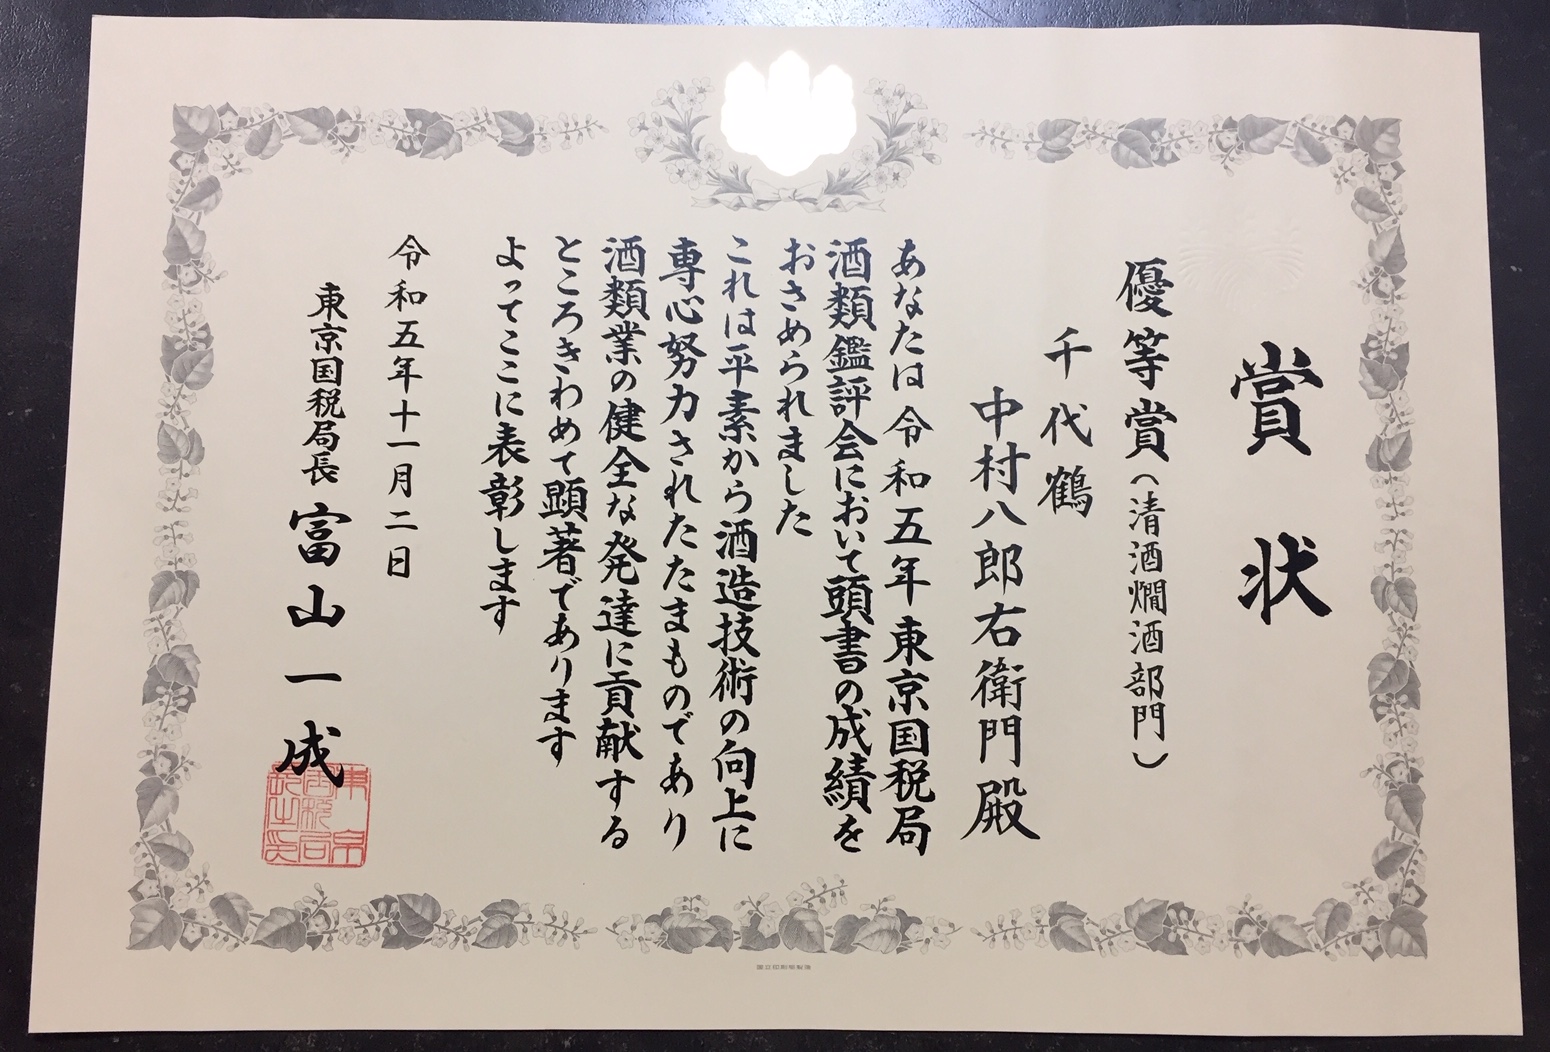 賞状
優等賞(清酒燗酒部門)
千代鶴
中村八郎右衛門殿
あなたは令和五年東京国税局
酒類鑑評会において頭書の成績を
おさめられました
これは平素から酒造技術の向上に
専心努力されたたまものであり
酒類業の健全な発達に貢献する
ところきわめて顕著であります
よってここに表彰します
令和五年十一月二日
東京国税局長 富山一成
東京国税局長之印
国立印刷局製造